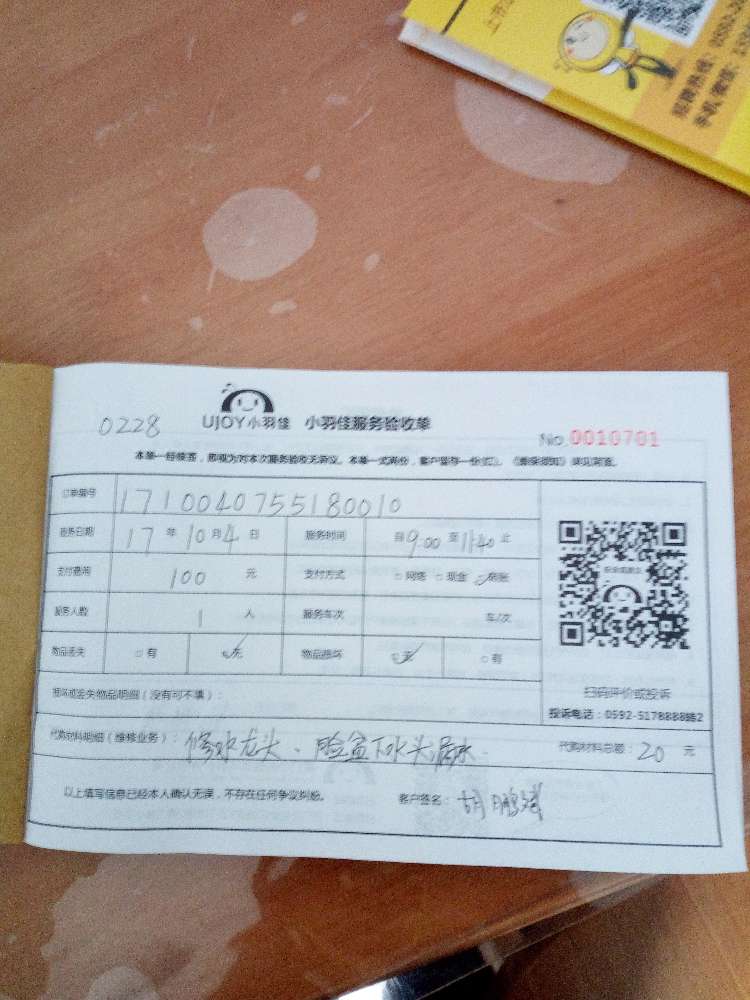 招聘热线：0592-
手机/微信：
0228
UJOY小羽佳 小羽佳服务验收单
No.0010701
本单一经签署，即视为对本次服务验收无异议。本单一式两份，客户留存一份(红)。《客保须知》详见背面。
订单编号 1710040755180010
服务日期 17年10月4日 服务时间 自9:00至11:40止
支付费用 100元 支付方式 □网络 □现金 ☑转账
服务人数 1人 服务车次 车/次
物品丢失 □有 ☑无 物品损坏 ☑无 □有
扫码评价或投诉
投诉电话：0592-5178888转2
损坏或丢失物品明细（没有可不填）：
代购材料明细（维修业务）：修水龙头、脸盆下水头漏水. 代购材料总额：20元
以上填写信息已经本人确认无误，不存在任何争议纠纷。 客户签名：胡鹏斌